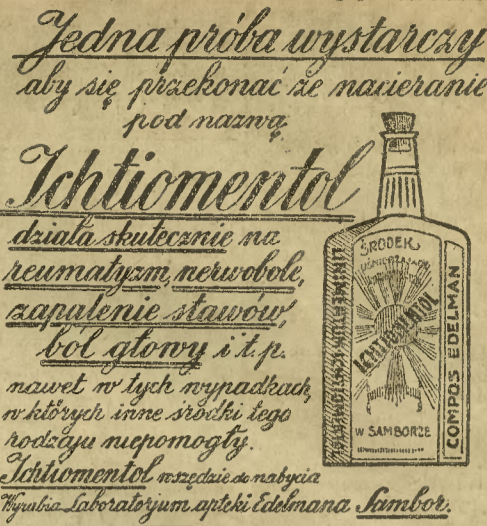 Jedna próba wystarczy
aby się przekonać że nacieranie
pod nazwą
Ichtiomentol
działa skutecznie na
reumatyzm, nerwobole,
zapalenie stawów,
ból głowy i t.p.
nawet w tych wypadkach,
w których inne środki tego
rodzaju niepomogły.
Ichtiomentol wszędzie do nabycia
Wyrabia Laboratorjum apteki Edelmana Sambor.
ŚRODEK
UŚMIERZAJĄCY
ICHTIOMENTOL
W SAMBORZE
COMPOS EDELMAN
LINIMENTUM ICHTIOMENTOL